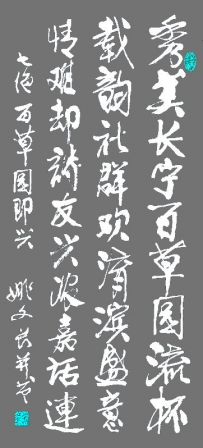 秀美长宁百草园流杯
载韵社群欢渭滨盛意
情难却诗友兴浓嘉话連
七绝 百草园即兴 姚文